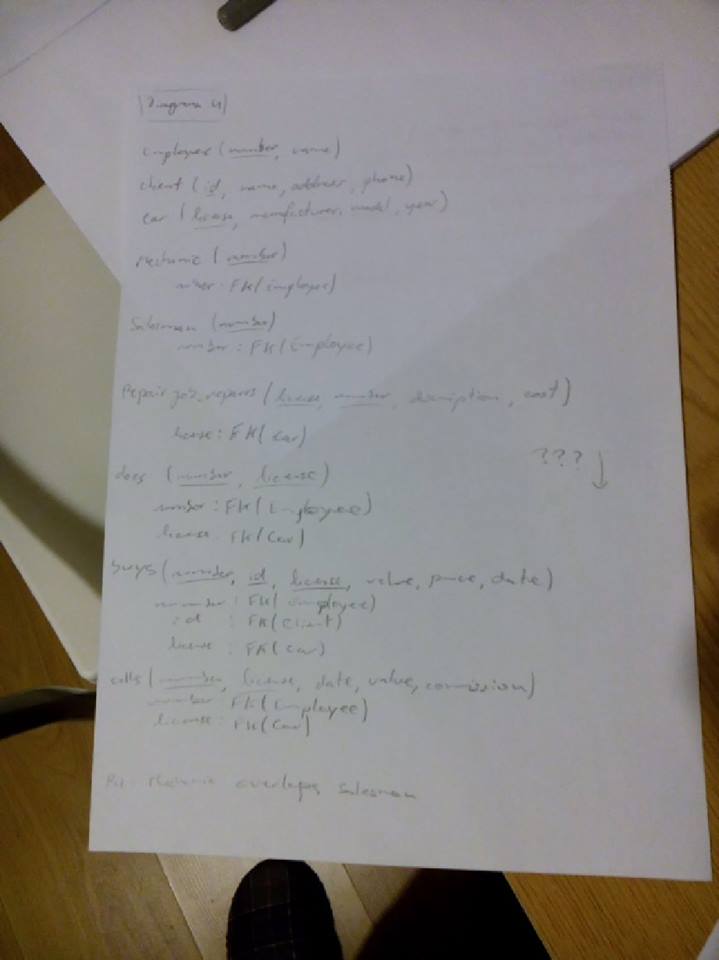 Diagrama 4
Employee (number, name)
client (id, name, address, phone)
car (license, manufacturer, model, year)
Mechanic (number)
number : FK(Employee)
Salesman (number)
number : FK(Employee)
Repair job_repairs (license, number, description, cost)
license : FK(car)
??? ↓
does (number, license)
number : FK(Employee)
license : FK(Car)
buys (number, id, license, value, price, date)
number : FK(Employee)
id : FK(Client)
license : FK(Car)
sells (number, license, date, value, comission)
number : FK(Employee)
license : FK(Car)
Mechanic overlaps Salesman